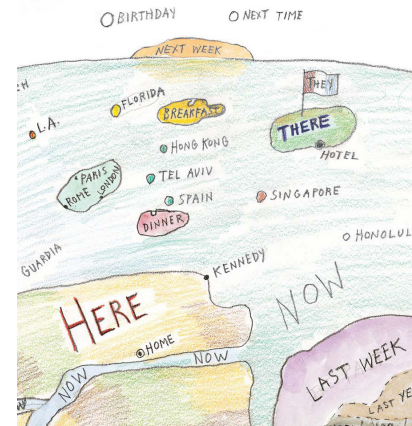 BIRTHDAY
NEXT TIME
NEXT WEEK
THEY
FLORIDA
BREAKFAST
L.A.
THERE
HONG KONG
HOTEL
PARIS
ROME
LONDON
TEL AVIV
SPAIN
SINGAPORE
DINNER
HONOLUL
GUARDIA
KENNEDY
NOW
HERE
HOME
NOW
NOW
LAST WEEK
LAST YE